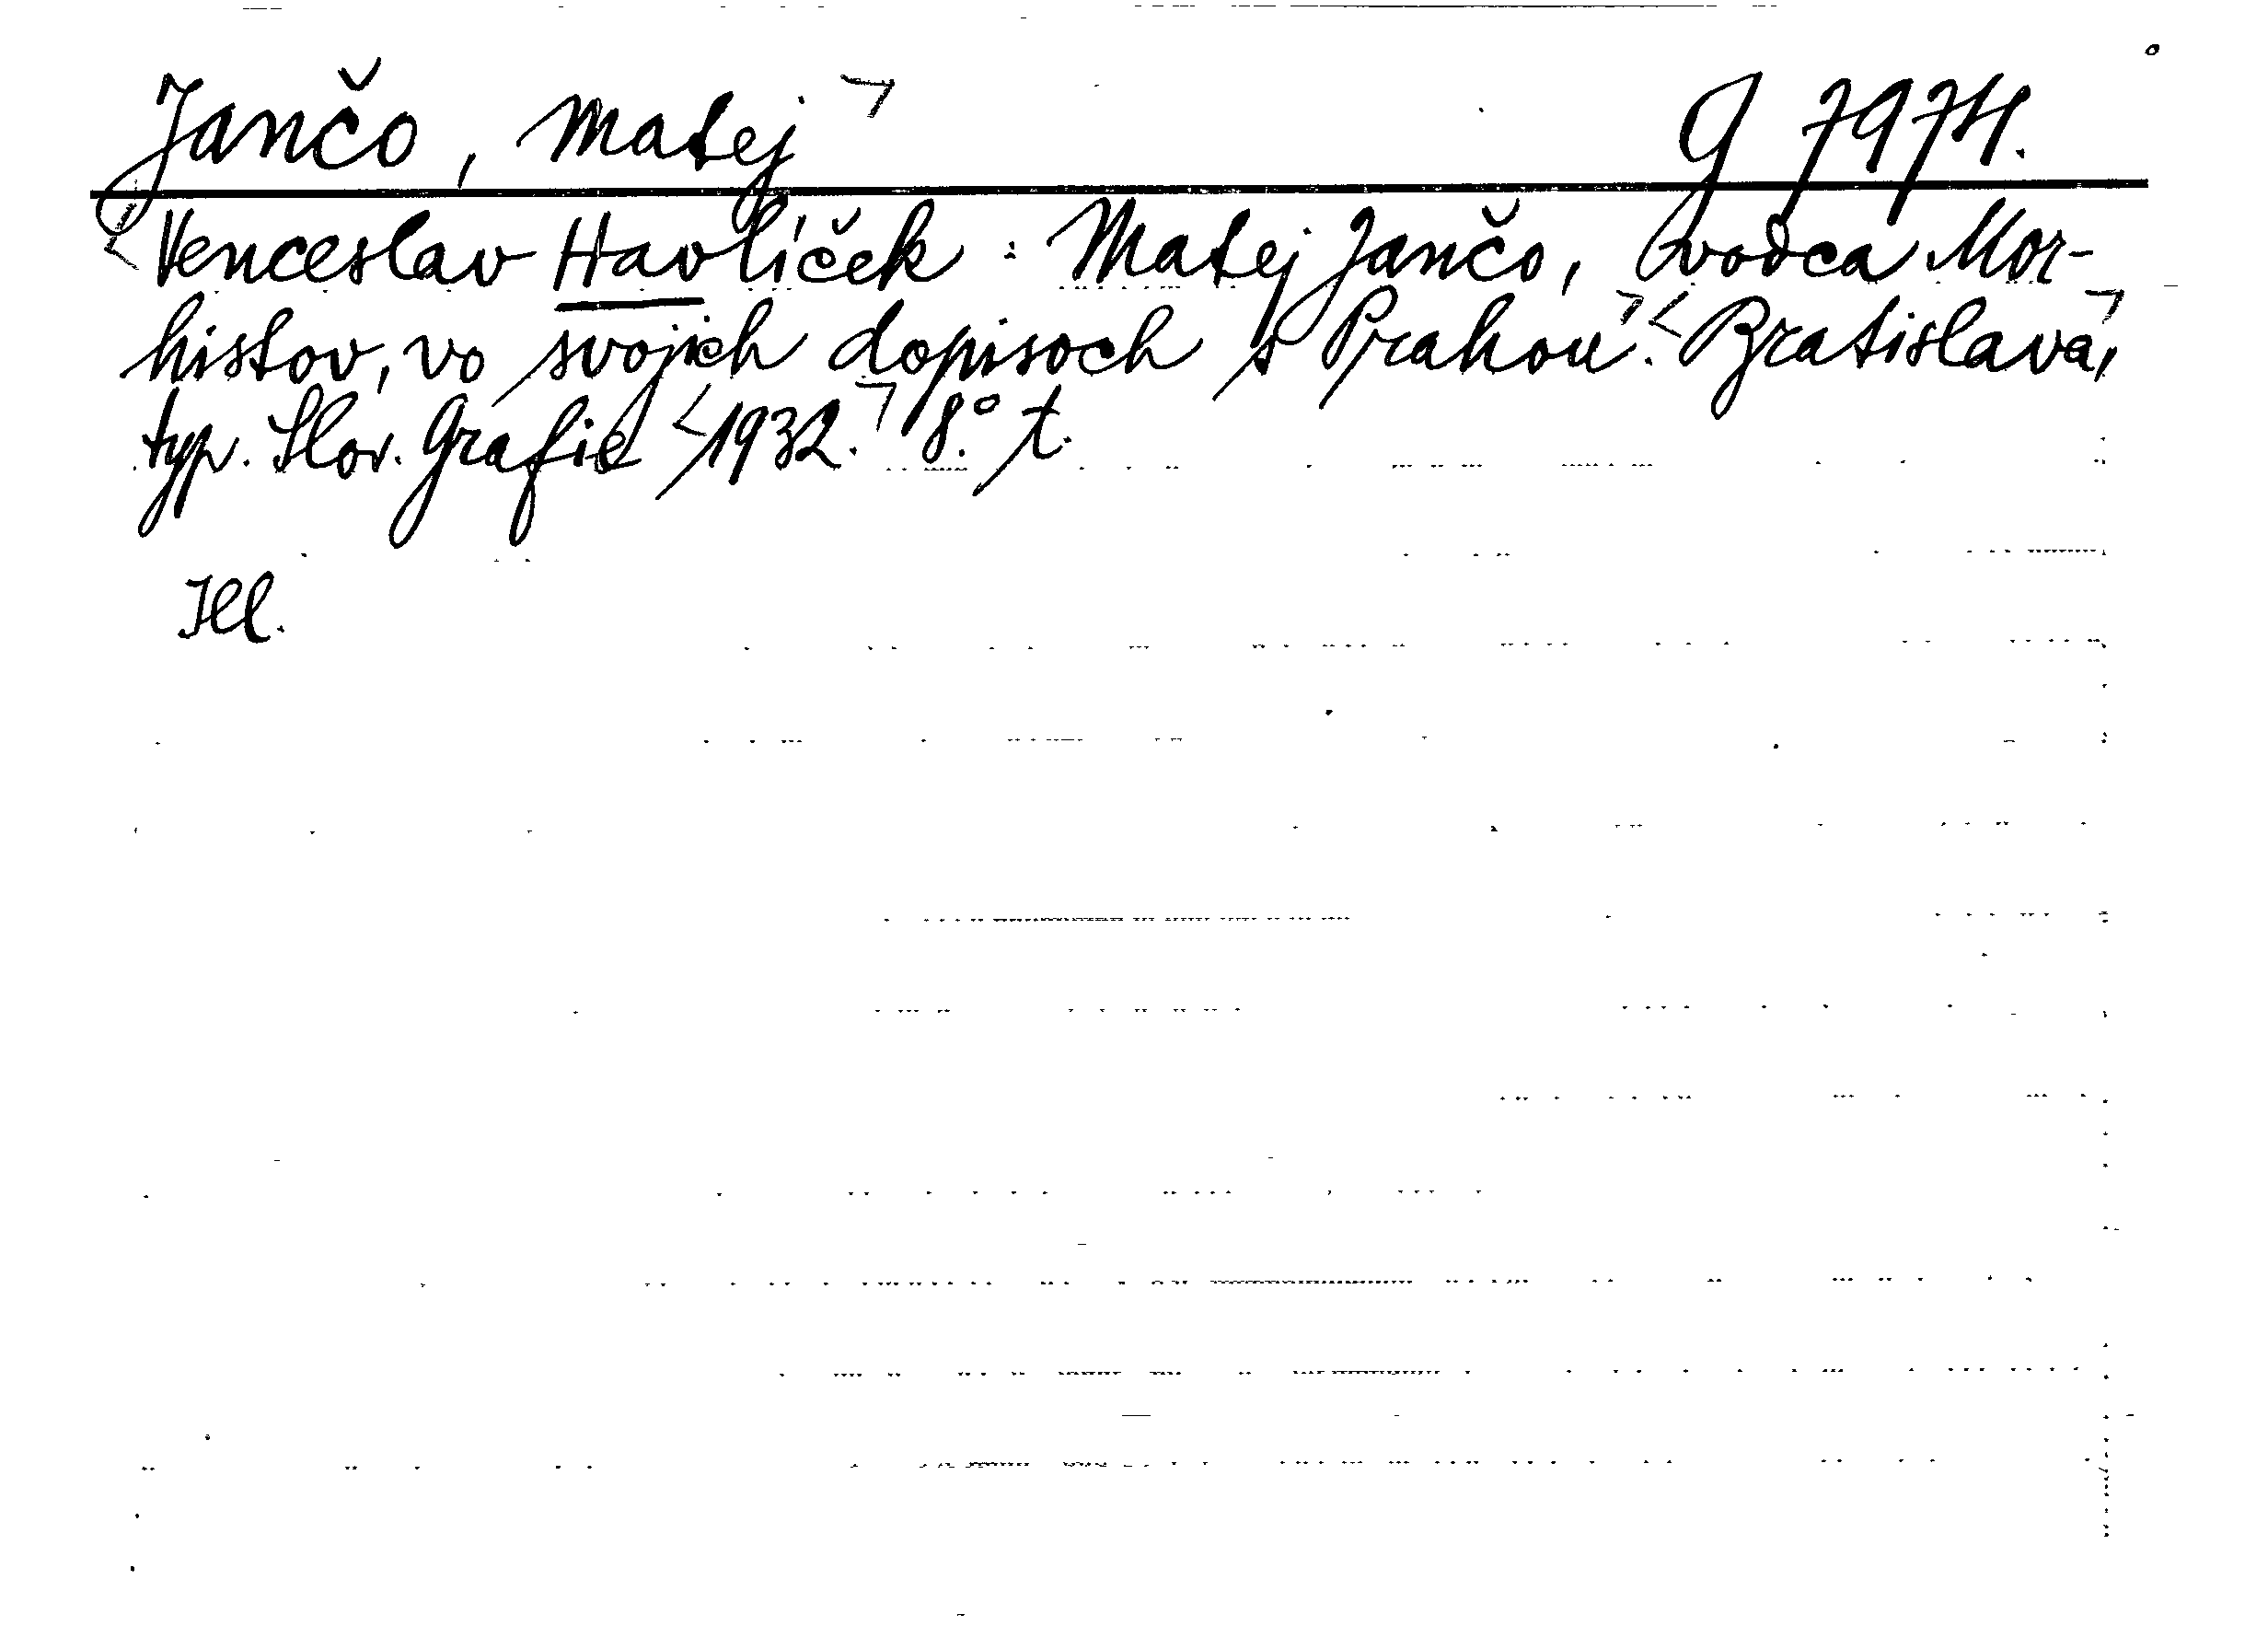 Jančo, Matej G 7974.
Venceslav Havlíček: Matej Jančo, vodca Mor-
histov, vo svojich dopisoch s Prahou. Bratislava,
typ. Slov. Grafie 1932. 8.° t.
Ill.